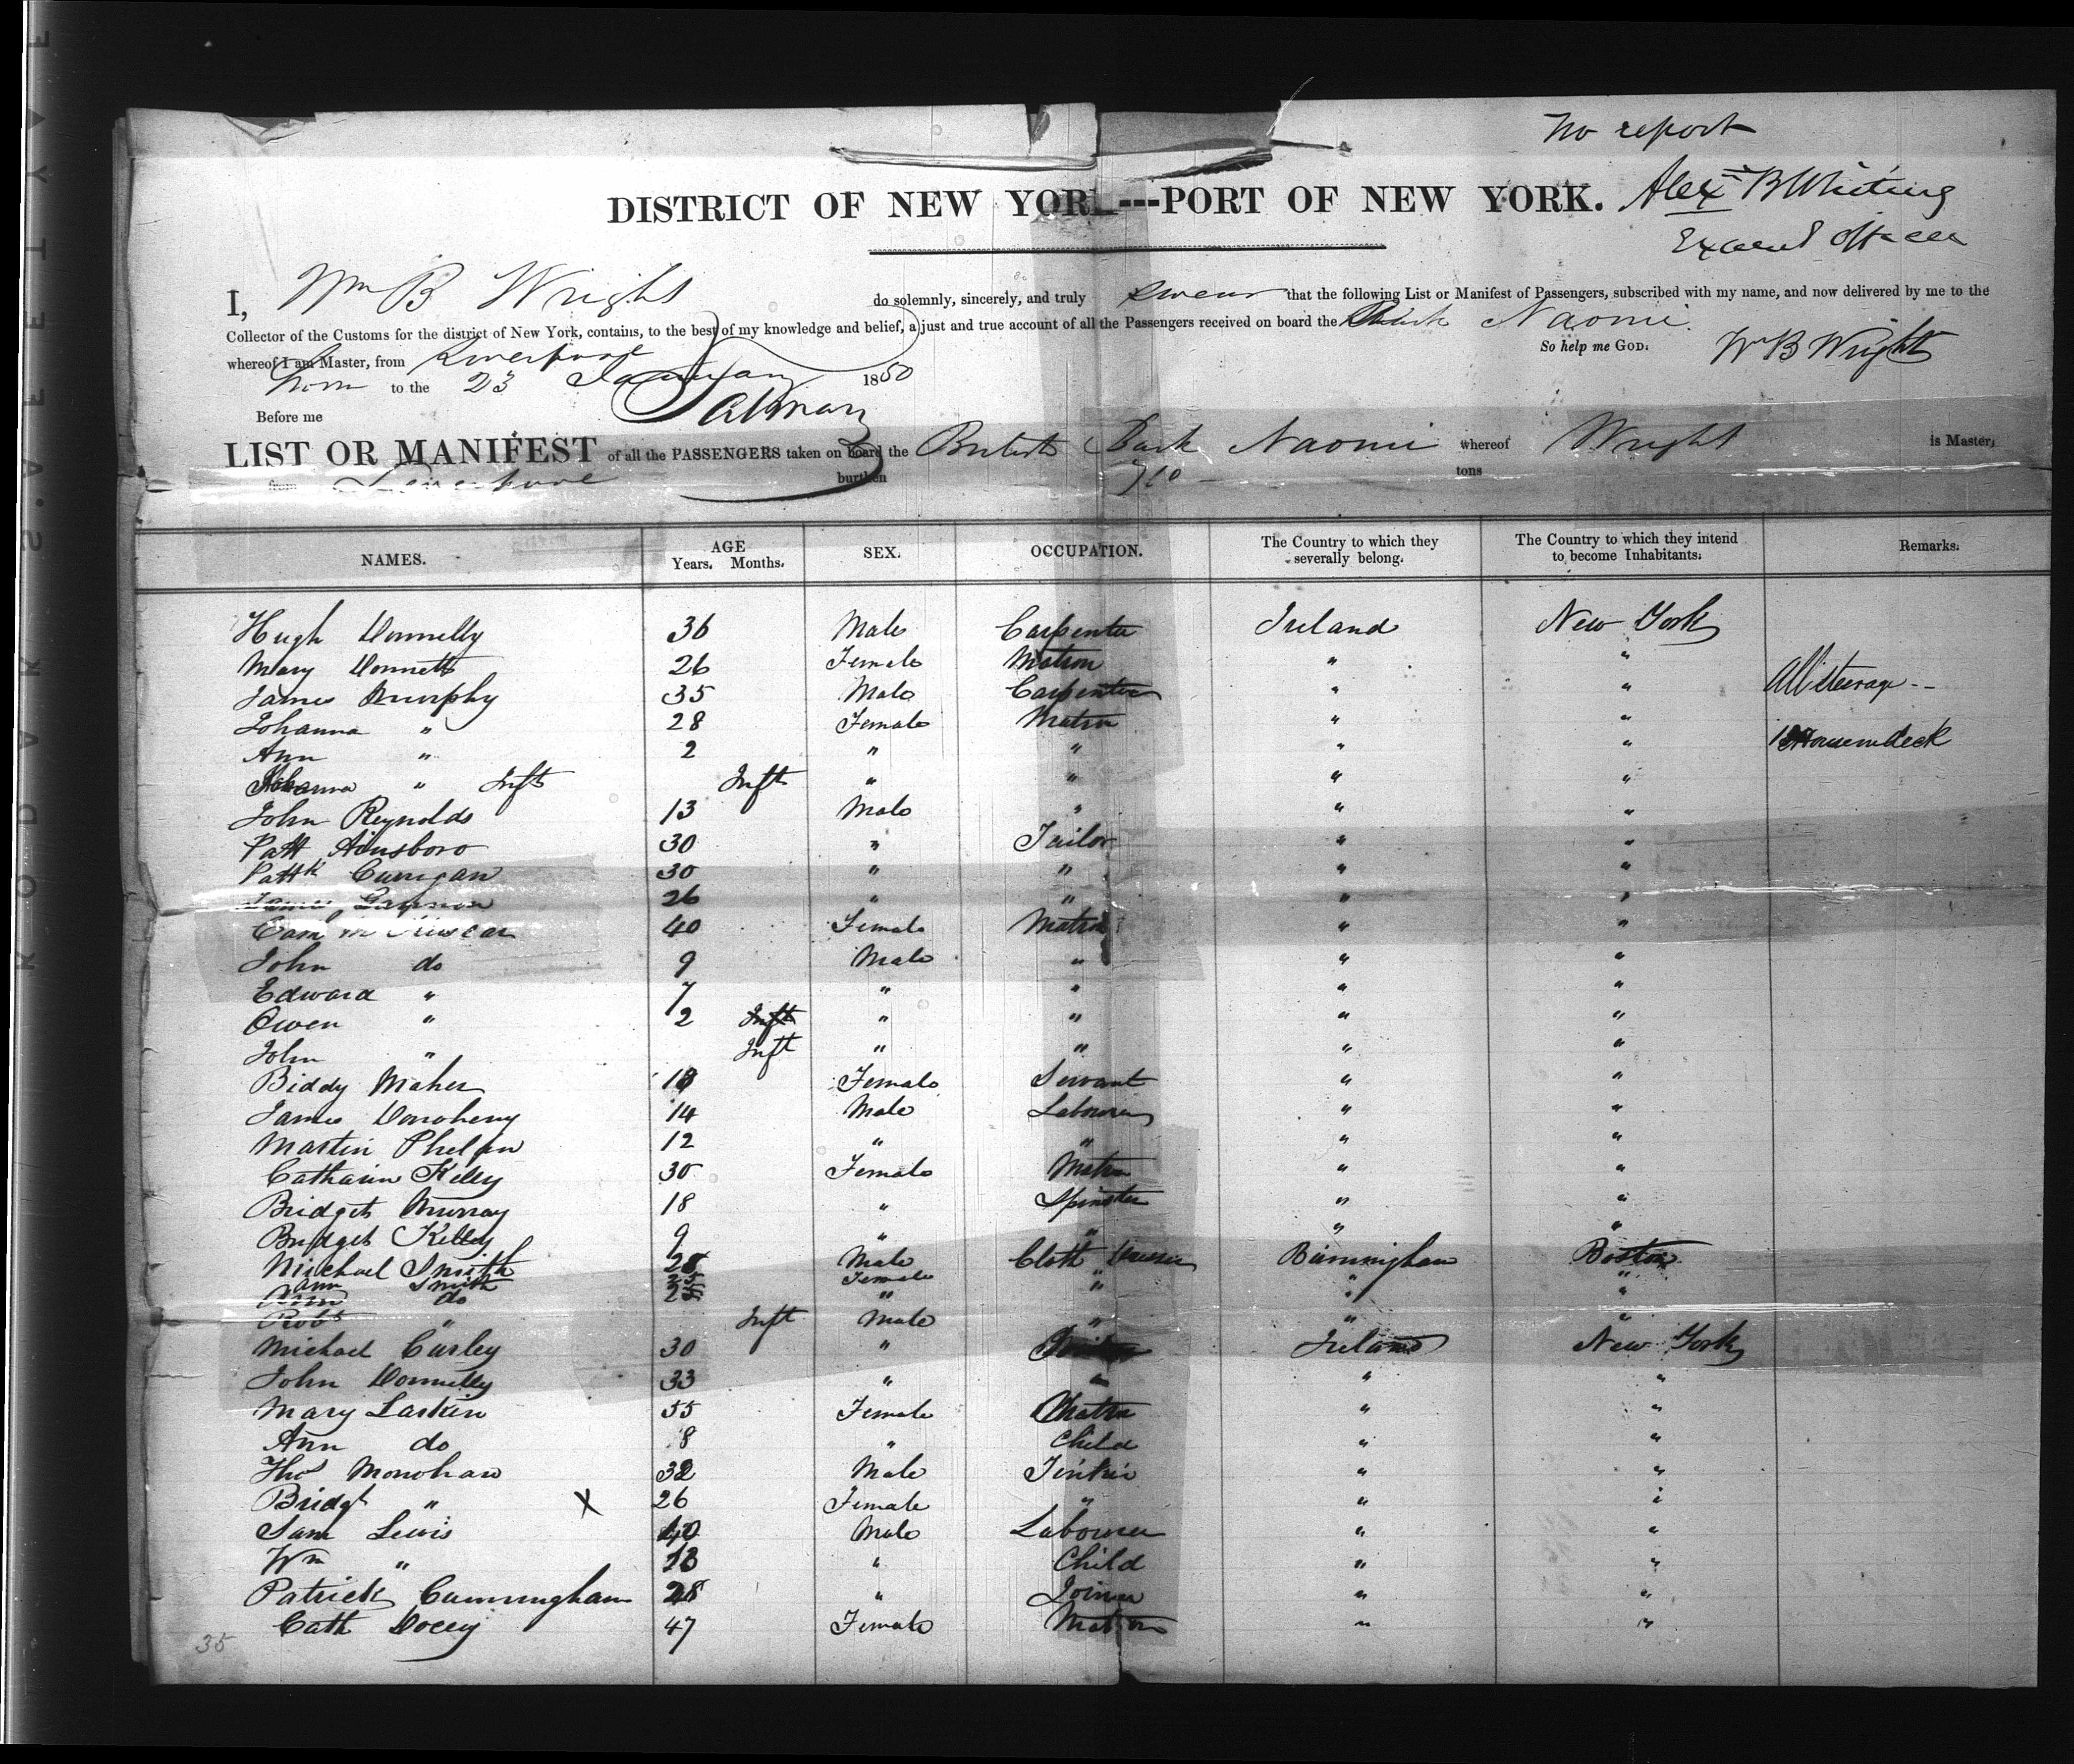 No report
DISTRICT OF NEW YORK---PORT OF NEW YORK. Alexr B Whiting
Officer
I, Wm B Wright do solemnly, sincerely, and truly swear that the following List or Manifest of Passengers, subscribed with my name, and now delivered by me to the
Collector of the Customs for the district of New York, contains, to the best of my knowledge and belief, a just and true account of all the Passengers received on board the Bark Naomi.
whereof I am Master, from Liverpool So help me GOD. Wm B Wright
to the 23 January 1850
Before me
LIST OR MANIFEST of all the PASSENGERS taken on board the British Bark Naomi whereof Wright is Master,
from Liverpool burthen 710 tons
NAMES. AGE Years. Months. SEX. OCCUPATION. The Country to which they severally belong. The Country to which they intend to become Inhabitants. Remarks.
Hugh Donnelly 36 Male Carpenter Ireland New York
Mary Donnelly 26 Female Matron " "
James Murphy 35 Male Carpenter " " All steerage --
Johanna " 28 Female Matron " "
Ann " 2 " " " " deck
Johanna " Inft Inft " " " "
John Reynolds 13 Male " " "
Patk Ainsboro 30 " Tailor " "
Pattk Currigan 30 " " " "
James Gannon 26 " " " "
40 Female Matron " "
John do 9 Male " " "
Edward " 7 " " " "
Owen " 2 Inft " " " "
John " Inft " " " "
Biddy Maher 18 Female Servant " "
James Donoheny 14 Male Labourer " "
Martin Phelan 12 " " " "
Catharin Kelly 30 Female Matron " "
Bridget Murray 18 " Spinster " "
Bridget Kelly 9 " " " "
Michael Smith 28 Male Cloth Birmingham Boston
Ann Smith 25 Female " " "
Ann do 25 " " "
Robt " Inft Male " " "
Michael Curley 30 " Ireland New York
John Donnelly 33 " " " "
Mary Larkin 55 Female Matron " "
Ann do 8 " Child " "
Thos Monohan 32 Male " "
Bridgt " X 26 Female " " "
Sam Lewis 40 Male Labourer " "
Wm " 13 " Child " "
Patrick Cunningham 28 " Joiner " "
Cath Docey 47 Female Matron " "
35